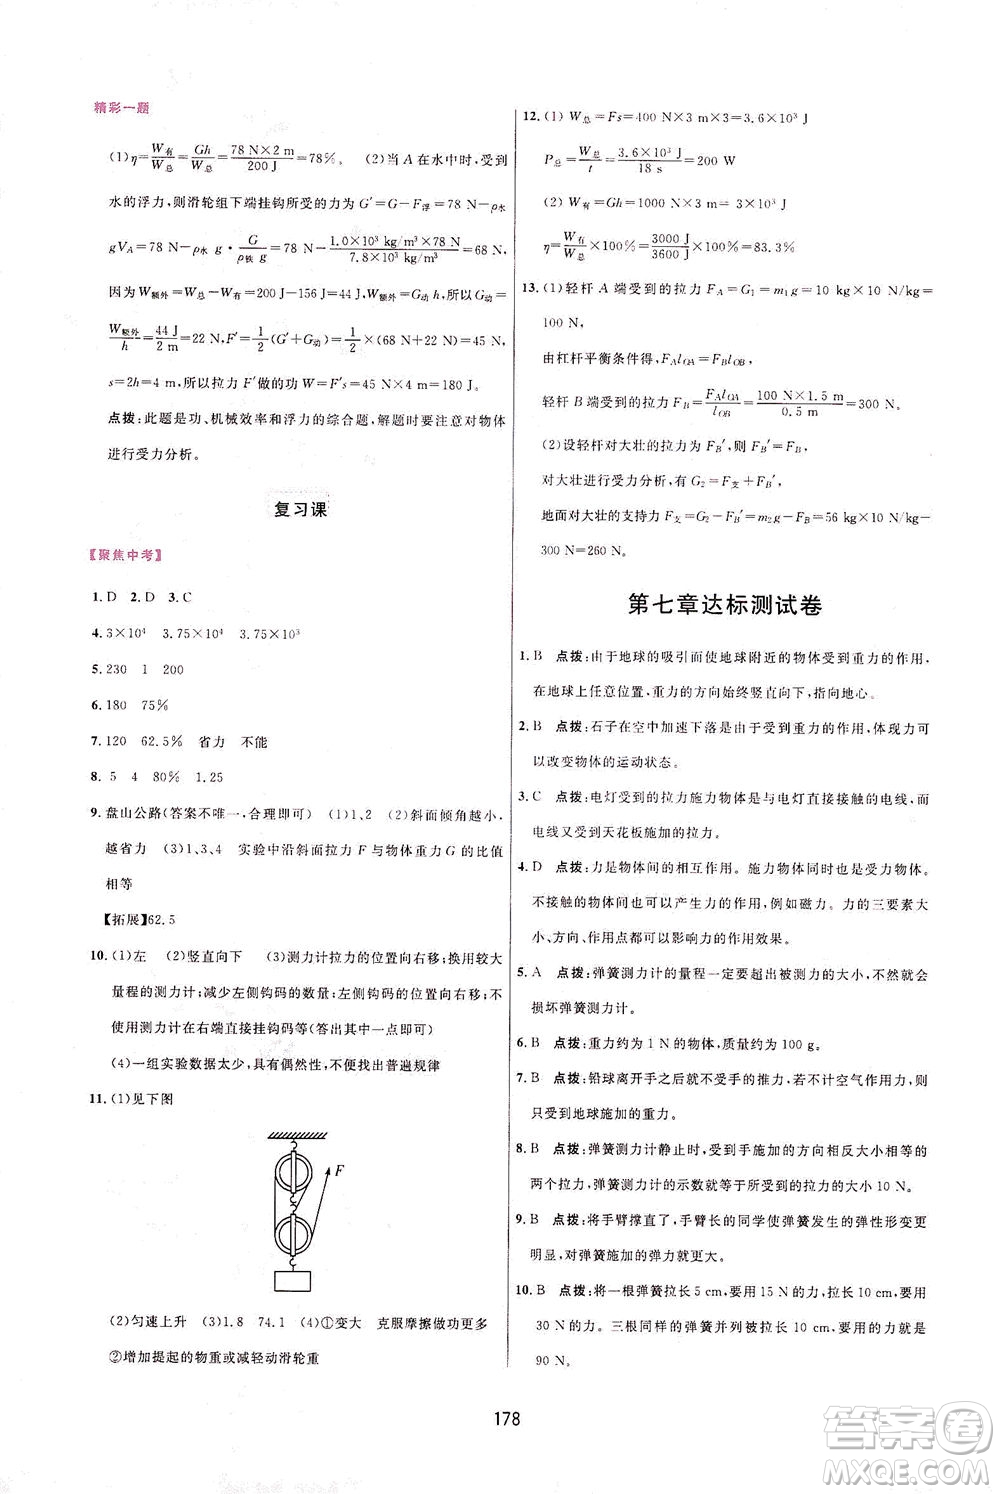 精彩一题
(1)η=W有/W总=Gh/W总=78 N×2 m/200 J=78%。 (2)当 A 在水中时,受到
水的浮力,则滑轮组下端挂钩所受的力为 G′=G-F浮=78 N-ρ水
gVA=78 N-ρ水 g·G/ρ铁 g=78 N-1.0×10³ kg/m³×78 N/7.8×10³ kg/m³=68 N,
因为W额外=W总-W有=200 J-156 J=44 J,W额外=G动 h,所以 G动=
W额外/h=44 J/2 m=22 N,F′=1/2(G′+G动)=1/2×(68 N+22 N)=45 N,
s=2h=4 m,所以拉力 F′做的功 W=F′s=45 N×4 m=180 J。
点拨:此题是功、机械效率和浮力的综合题,解题时要注意对物体
进行受力分析。
复习课
【聚焦中考】
1. D 2. D 3. C
4. 3×10⁴ 3.75×10⁴ 3.75×10³
5. 230 1 200
6. 180 75%
7. 120 62.5% 省力 不能
8. 5 4 80% 1.25
9. 盘山公路(答案不唯一,合理即可) (1)大 (2)斜面倾角越小,
越省力 (3)1、3、4 实验中沿斜面拉力 F 与物体重力 G 的比值
相等
【拓展】62.5
10. (1)左 (2)竖直向下 (3)测力计拉力的位置向右移;换用较大
量程的测力计;减少左侧钩码的数量;左侧钩码的位置向右移;不
使用测力计在右端直接挂钩码等(答出其中一点即可)
(4)一组实验数据太少,具有偶然性,不便找出普遍规律
11. (1)见下图
F
(2)匀速上升 (3)1.8 74.1 (4)①变大 克服摩擦做功更多
②增加提起的物重或减轻动滑轮重
12. (1) W总=Fs=400 N×3 m×3=3.6×10³ J
P总=W总/t=3.6×10³ J/18 s=200 W
(2) W有=Gh=1000 N×3 m=3×10³ J
η=W有/W总×100%=3000 J/3600 J×100%=83.3%
13. (1)轻杆 A 端受到的拉力 FA=G1=m1g=10 kg×10 N/kg=
100 N,
由杠杆平衡条件得,FAlOA=FBlOB
轻杆 B 端受到的拉力 FB=FAlOA/lOB=100 N×1.5 m/0.5 m=300 N。
(2)设轻杆对大壮的拉力为 FB′,则 FB′=FB,
对大壮进行受力分析,有 G2=F支+FB′,
地面对大壮的支持力 F支=G2-FB′=m2g-FB′=56 kg×10 N/kg-
300 N=260 N。
第七章达标测试卷
1. B 点拨:由于地球的吸引而使地球附近的物体受到重力的作用,
在地球上任意位置,重力的方向始终竖直向下,指向地心。
2. B 点拨:石子在空中加速下落是由于受到重力的作用,体现力可
以改变物体的运动状态。
3. C 点拨:电灯受到的拉力施力物体是与电灯直接接触的电线,而
电线又受到天花板施加的拉力。
4. D 点拨:力是物体间的相互作用。施力物体同时也是受力物体。
不接触的物体间也可以产生力的作用,例如磁力。力的三要素大
小、方向、作用点都可以影响力的作用效果。
5. A 点拨:弹簧测力计的量程一定要超出被测力的大小,不然就会
损坏弹簧测力计。
6. B 点拨:重力约为 1 N 的物体,质量约为 100 g。
7. B 点拨:铅球离开手之后就不受手的推力,若不计空气作用力,则
只受到地球施加的重力。
8. B 点拨:弹簧测力计静止时,受到手施加的方向相反大小相等的
两个拉力,弹簧测力计的示数就等于所受到的拉力大小 10 N。
9. B 点拨:将手臂撑直了,手臂长的同学使弹簧发生的弹性形变更
明显,对弹簧施加的弹力就更大。
10. B 点拨:将一根弹簧拉长 5 cm,要用 15 N 的力,拉长 10 cm,要用
30 N 的力。三根同样的弹簧并列被拉长 10 cm,要用的力就是
90 N。
178
答案圈
MXQE.COM